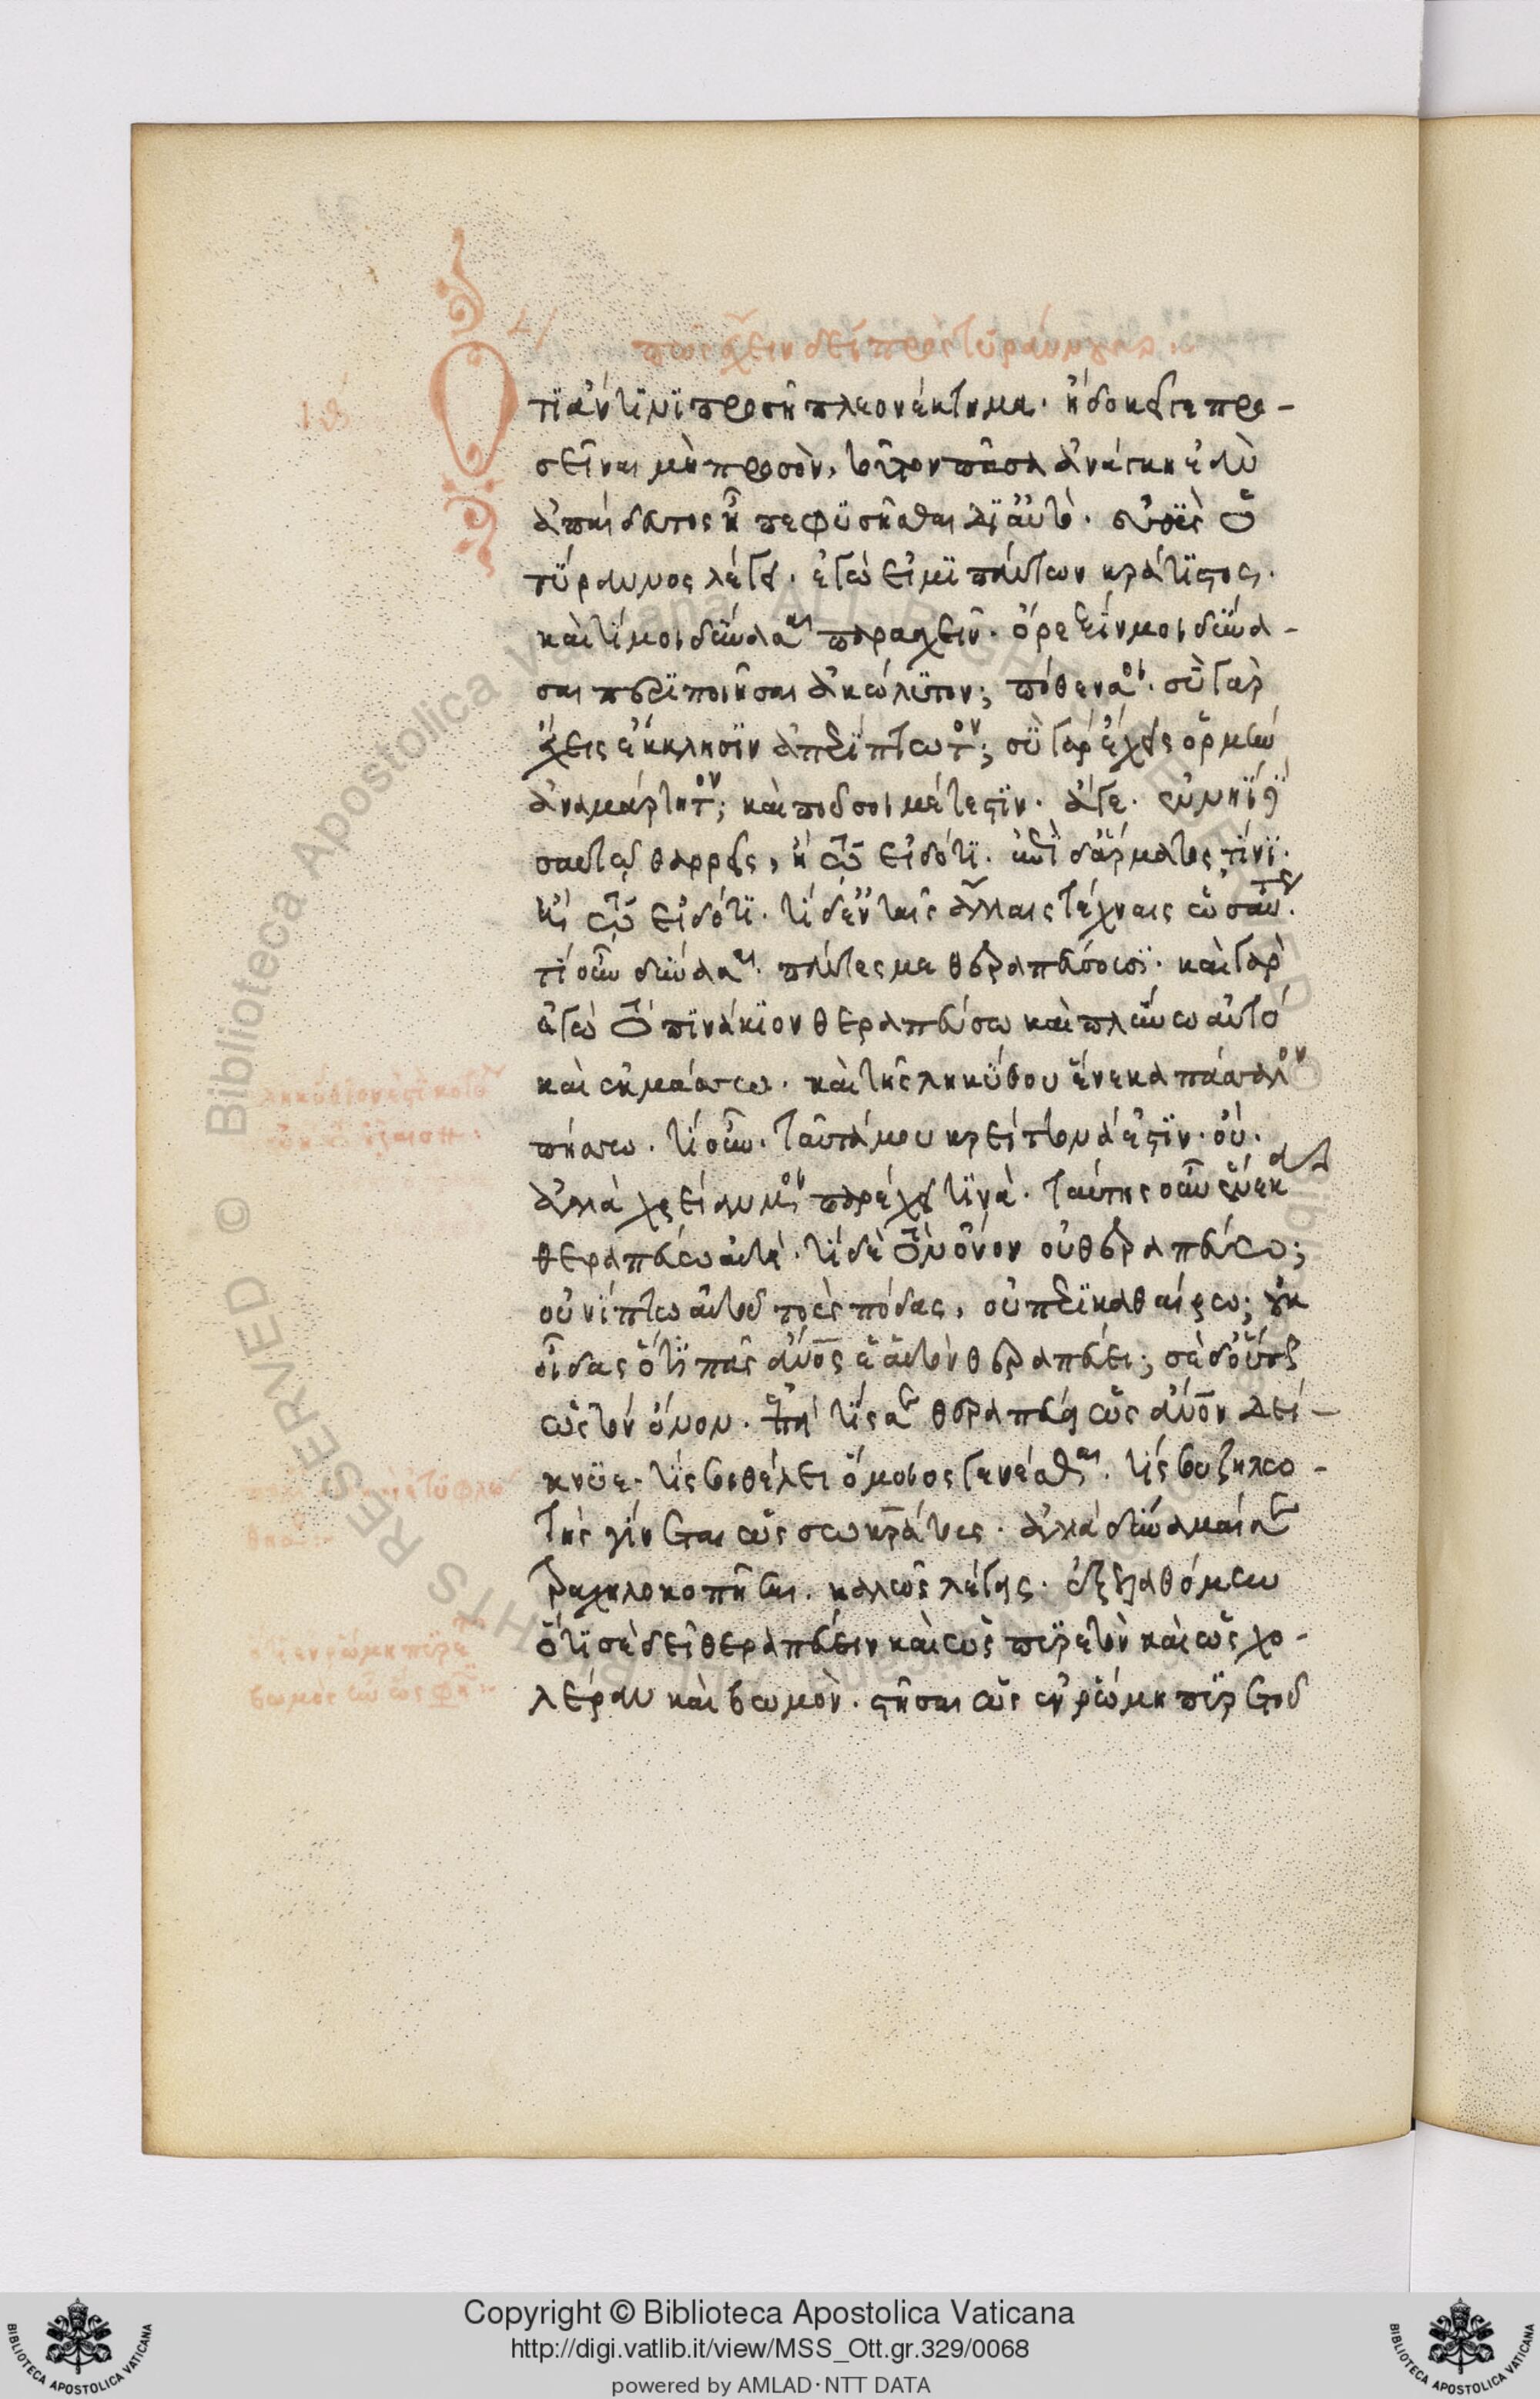 πῶς ἔχειν δεῖ πρὸς τυράννους:
ιθ
Ὅτι ἄν τινι προσῇ πλεονέκτημα· ἢ δοκεῖ γε προ-
σεῖναι μὴ προσὸν, τοῦτον πᾶσα ἀνάγκη ἐὰν
ἀπαίδευτος ᾖ πεφυσῆσθαι δι' αὐτό. εὐθὺς ὁ
τύραννος λέγει. ἐγώ εἰμι πάντων κράτιστος.
καὶ τί μοι δύνασαι παρασχεῖν. ὄρεξίν μοι δύνα-
σαι περιποιῆσαι ἀκώλυτον; πόθεν σοι. σὺ γὰρ
ἔχεις ἔκκλισιν ἀπερίπτωτον; σὺ γὰρ ἔχεις ὁρμὴν
ἀναμάρτητον; καὶ ποῦ σοι μέτεστιν. ἄγε. ἐν νηὶ
σαυτῷ θαρρεῖς, ἢ τῷ εἰδότι. ἐπὶ δ' ἅρματος τίνι.
ἢ τῷ εἰδότι. τί δ' ἐν ταῖς ἄλλαις τέχναις ὡσαύτως.
τί οὖν δύνασαι. πάντες με θεραπεύουσι. καὶ γὰρ
ἐγὼ τὸ πινάκιον θεραπεύω καὶ πλύνω αὐτὸ
καὶ ἐκμάσσω. καὶ τῆς ληκύθου ἕνεκα πάσσαλον
πήσσω. τί οὖν. ταῦτά μου κρείττονά ἐστιν. οὔ.
ἀλλὰ χρείαν μοι παρέχει τινά. ταύτης οὖν ἕνεκα
θεραπεύω αὐτά. τί δὲ τὸν ὄνον οὐ θεραπεύω;
οὐ νίπτω αὐτοῦ τοὺς πόδας, οὐ περικαθαίρω; οὐκ
οἶδας ὅτι πᾶς ἄνος ἑαυτὸν θεραπεύει; σὲ δ' οὕτως
ὡς τὸν ὄνον. ἐπεὶ τίς σε θεραπεύει ὡς ἄνον δεί-
κνυε. τίς σοι θέλει ὅμοιος γενέσθαι. τίς σου ζηλω-
τὴς γίνεται ὡς σωκράτους. ἀλλὰ δύναμαί σε
τραχηλοκοπῆσαι. καλῶς λέγεις. ἐξελαθόμην
ὅτι σὲ δεῖ θεραπεύειν καὶ ὡς πυρετὸν καὶ ὡς χο-
λέραν καὶ βωμὸν. στῆσαι ὡς ἐν ῥώμῃ πυρετοῦ
Copyright © Biblioteca Apostolica Vaticana
http://digi.vatlib.it/view/MSS_Ott.gr.329/0068
powered by AMLAD·NTT DATA
BIBLIOTECA APOSTOLICA VATICANA
BIBLIOTECA APOSTOLICA VATICANA